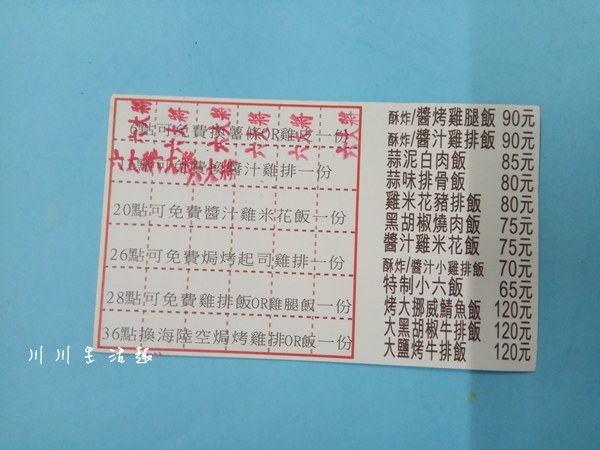 6點可免費換薯條OR雞皮一份
醬汁雞排一份
20點可免費醬汁雞米花飯一份
26點可免費焗烤起司雞排一份
28點可免費雞排飯OR雞腿飯一份
36點換海陸空焗烤雞排OR飯一份
六大將 六大將 六大將 六大將 六大將 六大將
六大將 六大將 六大將
酥炸/醬烤雞腿飯 90元
酥炸/醬汁雞排飯 90元
蒜泥白肉飯 85元
蒜味排骨飯 80元
雞米花豬排飯 80元
黑胡椒燒肉飯 75元
醬汁雞米花飯 75元
酥炸/醬汁小雞排飯 70元
特制小六飯 65元
烤大挪威鯖魚飯 120元
大黑胡椒牛排飯 120元
大鹽烤牛排飯 120元
川川生活趣